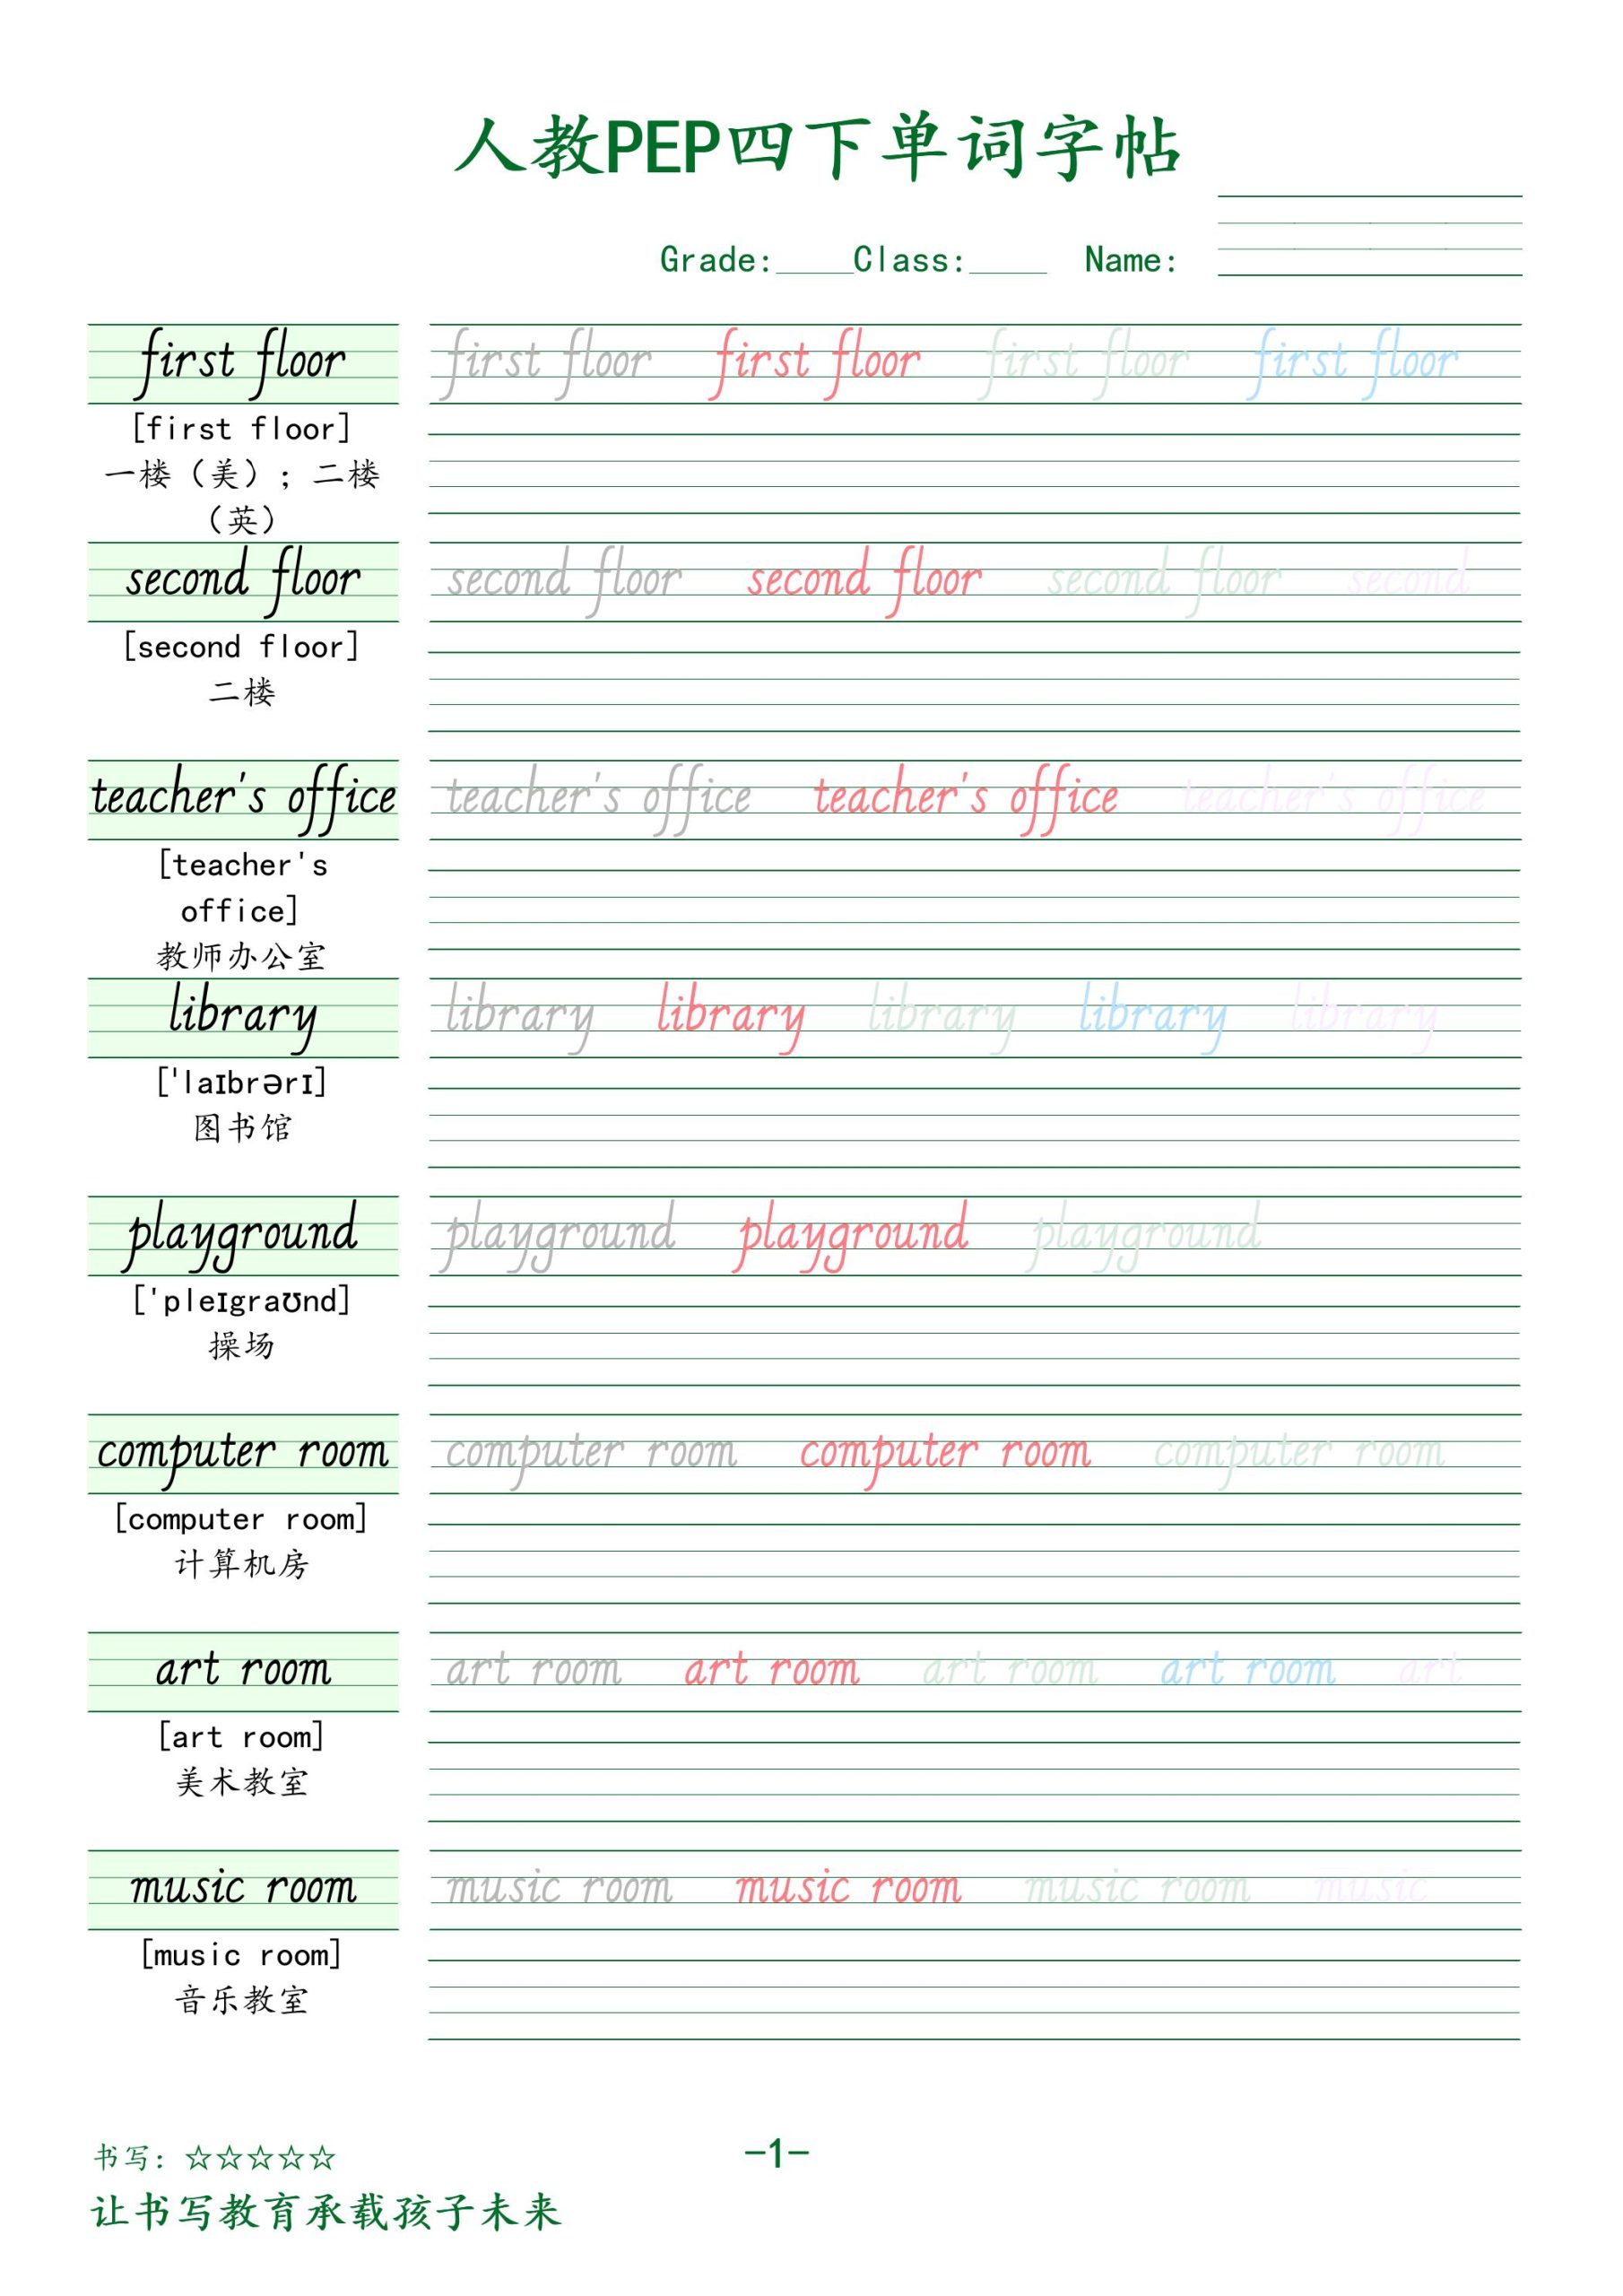 人教PEP四下单词字帖
Grade:____Class:____ Name:
first floor first floor first floor first floor first floor
[first floor]
一楼（美）；二楼
（英）
second floor second floor second floor second floor second
[second floor]
二楼
teacher's office teacher's office teacher's office teacher's office
[teacher's
office]
教师办公室
library library library library library library
['laɪbrərɪ]
图书馆
playground playground playground playground
['pleɪgraʊnd]
操场
computer room computer room computer room computer room
[computer room]
计算机房
art room art room art room art room art room art
[art room]
美术教室
music room music room music room music room music
[music room]
音乐教室
书写：☆☆☆☆☆
-1-
让书写教育承载孩子未来